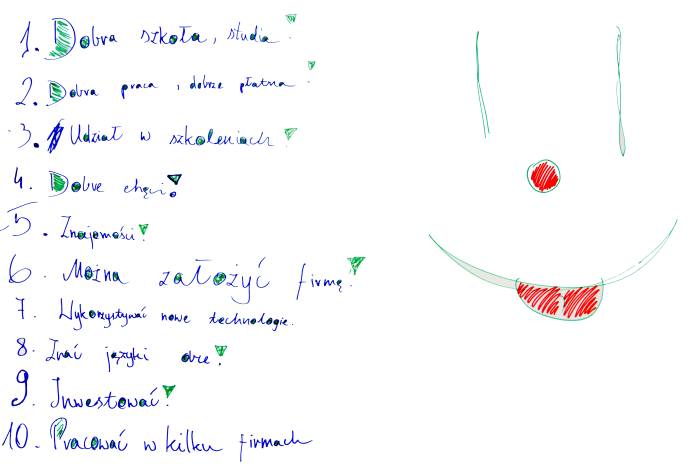 1. Dobra szkoła, studia!
2. Dobra praca, dobrze płatna!
3. Udział w szkoleniach!
4. Dobre chęci!
5. Znajomości!
6. Można założyć firmę!
7. Wykorzystywać nowe technologie.
8. Znać języki obce!
9. Inwestować!
10. Pracować w kilku firmach